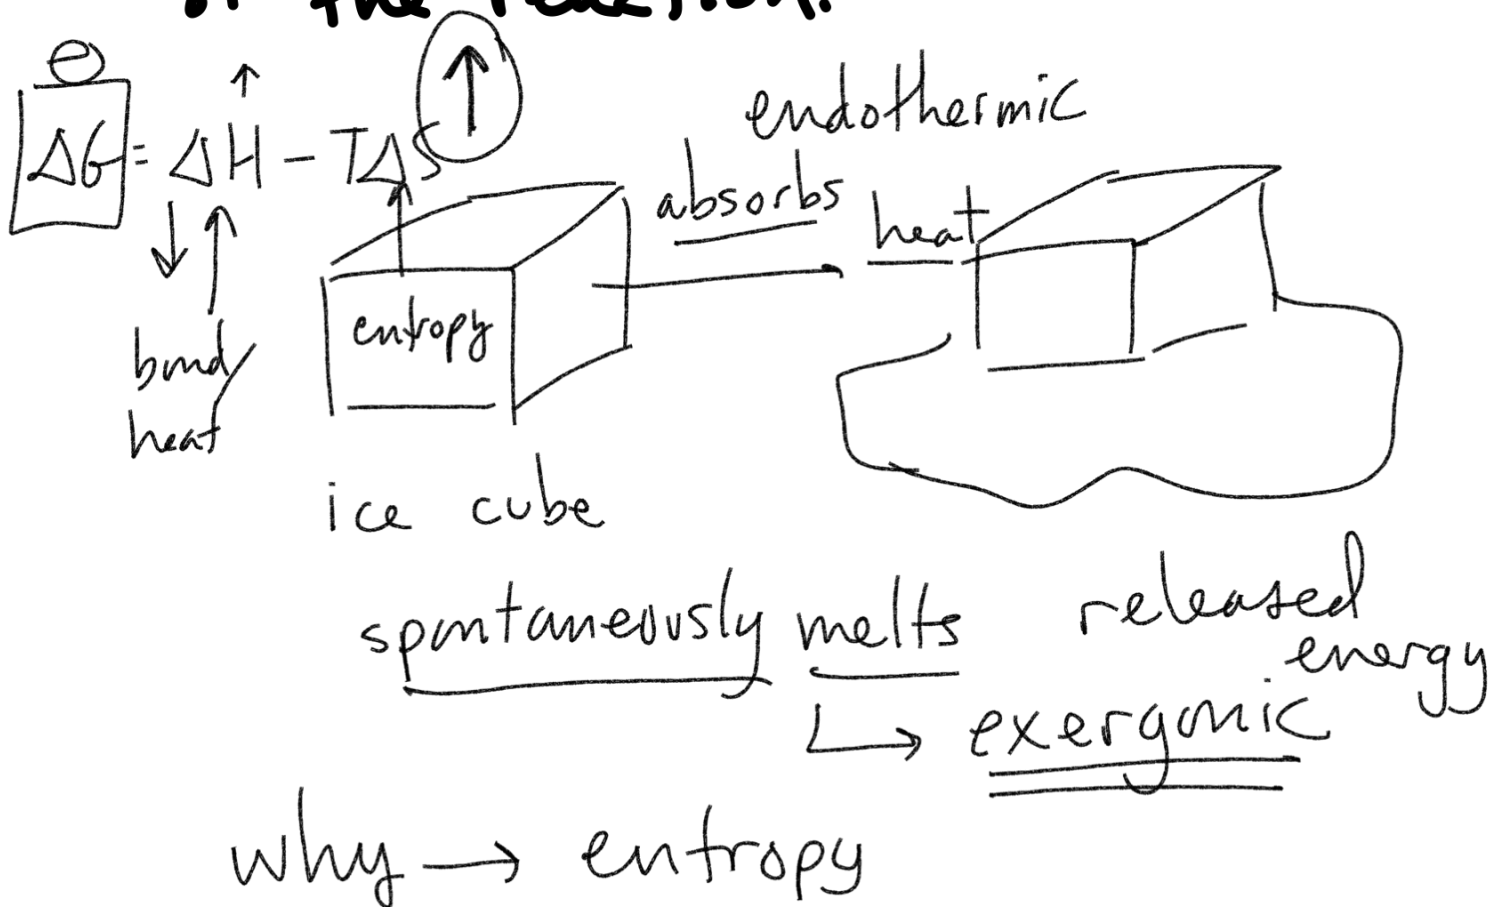 of the reaction.
⊖
ΔG = ΔH - TΔS
endothermic
absorbs heat
entropy
bond/
heat
ice cube
spontaneously melts
released
energy
exergonic
why → entropy